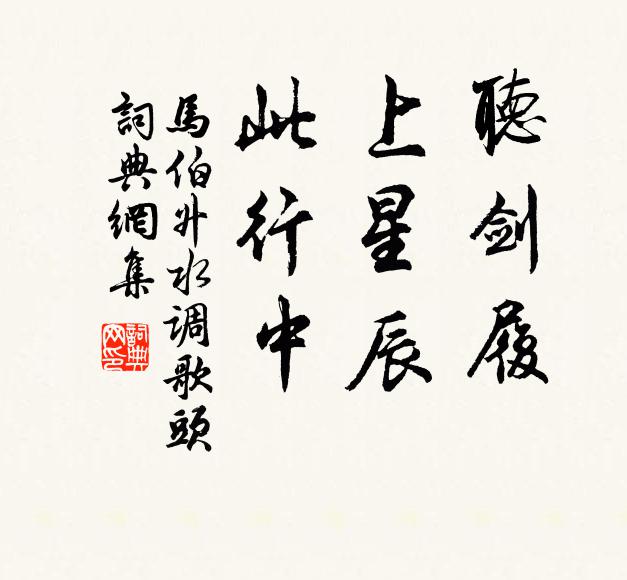 聽剑履
上星辰
此行中
馬伯升水调歌頭
詞典網集
詞典网印